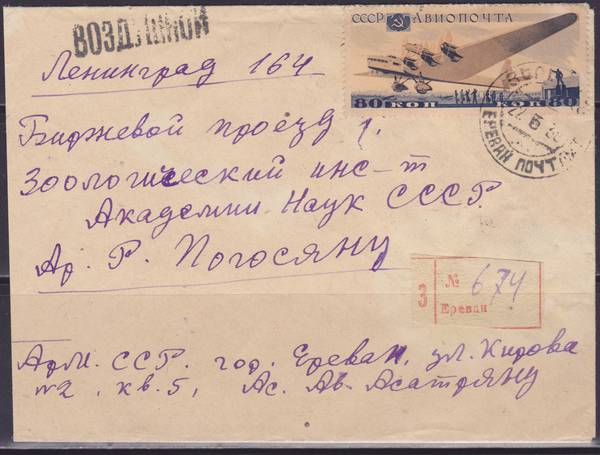 ВОЗДУШНОЙ
СССР АВИОПОЧТА
80 КОП КОП 80
ЕРЕВАН ПОЧТ
Ленинград 164
Биржевой проезд 1.
Зоологический инс-т
Академии Наук СССР.
Ар. Р. Погосяну
№ 674
З
Ереван
Арм. ССР. гор. Ереван, ул. Кирова
№2, кв. 5, Ас. Ав. Асатряну